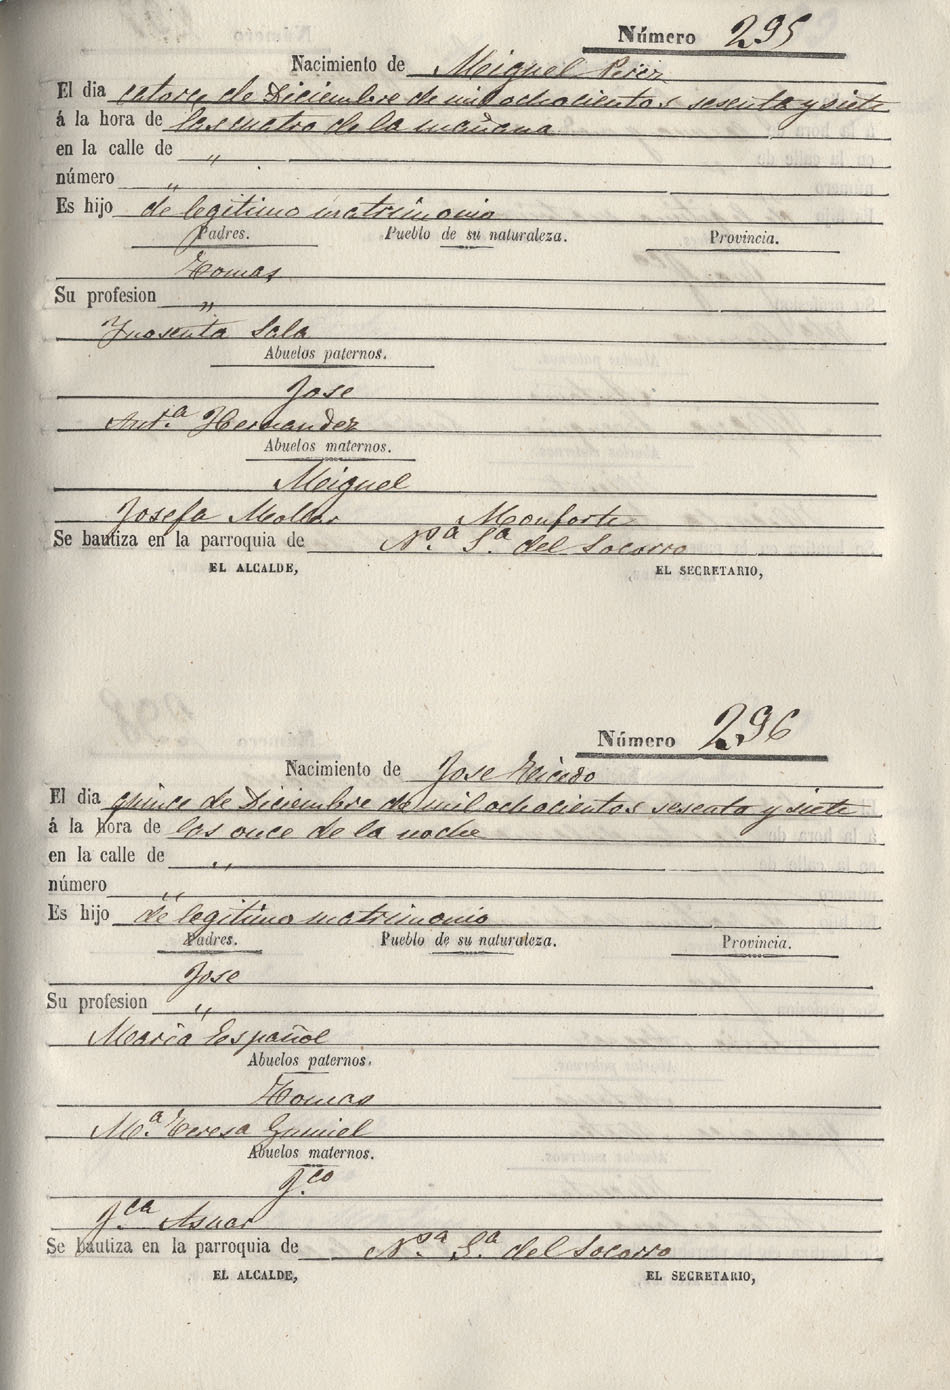 Número 295
Nacimiento de Miguel Perez
El dia catorce de Diciembre de mil ochocientos sesenta y siete
á la hora de las cuatro de la mañana
en la calle de "
número "
Es hijo de legitimo matrimonio
Padres. Pueblo de su naturaleza. Provincia.
Tomas
Su profesion "
Ynosenta Sala
Abuelos paternos.
Jose
Ant.a Hernandez
Abuelos maternos.
Miguel
Josefa Mollar Monforte
Se bautiza en la parroquia de N.a S.a del Socorro
EL ALCALDE, EL SECRETARIO,
Número 296
Nacimiento de Jose
El dia quince de Diciembre de mil ochocientos sesenta y siete
á la hora de las once de la noche
en la calle de "
número "
Es hijo de legitimo matrimonio
Padres. Pueblo de su naturaleza. Provincia.
Jose
Su profesion "
Maria Español
Abuelos paternos.
Tomas
M.a Teresa
Abuelos maternos.
F.co
F.ca Asnar
Se bautiza en la parroquia de N.a S.a del Socorro
EL ALCALDE, EL SECRETARIO,